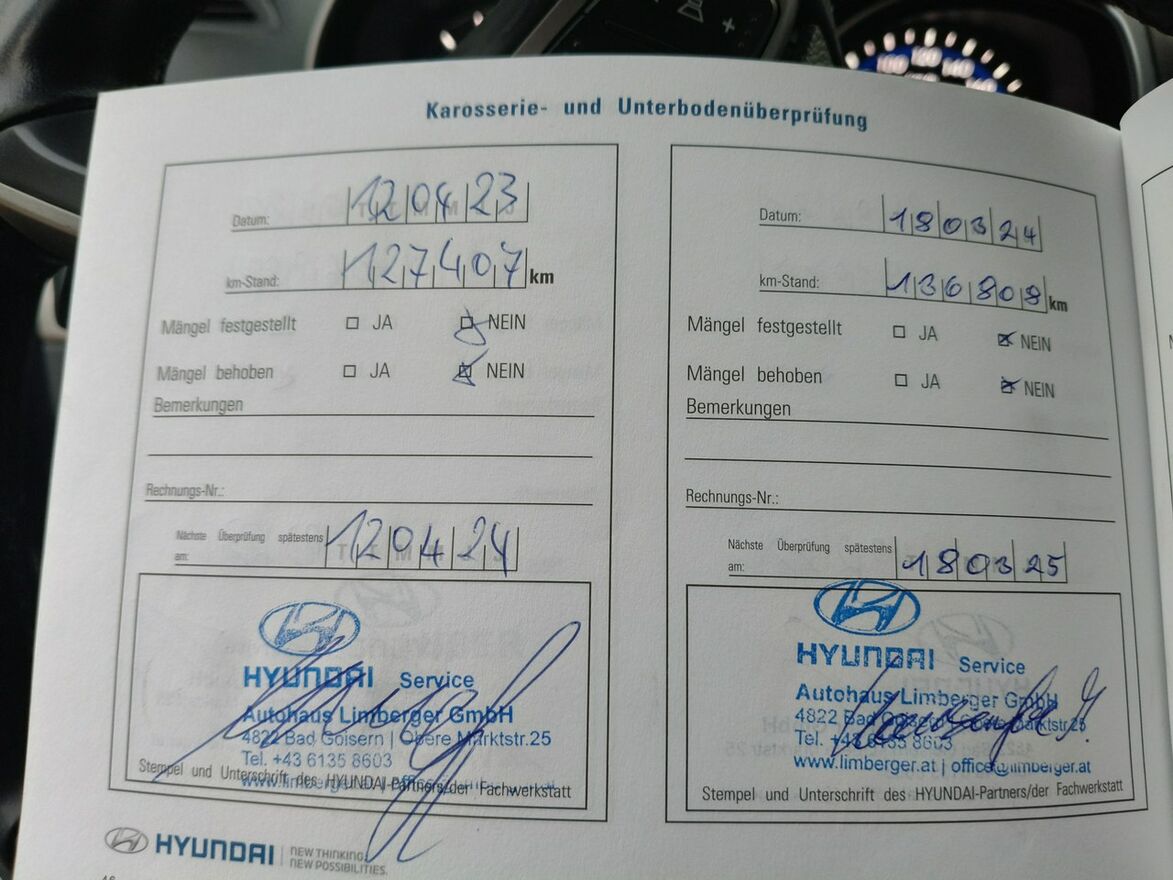 100 120 140
Karosserie- und Unterbodenüberprüfung
Datum: 12 04 23
km-Stand: 127407 km
Mängel festgestellt JA NEIN
Mängel behoben JA NEIN
Bemerkungen
Rechnungs-Nr.:
Nächste Überprüfung spätestens
am: 12 04 24
HYUNDAI Service
Autohaus Limberger GmbH
4822 Bad Goisern | Obere Marktstr.25
Tel. +43 6135 8603
Stempel und Unterschrift des HYUNDAI-Partners/der Fachwerkstatt
Datum: 18 03 24
km-Stand: 136808 km
Mängel festgestellt JA NEIN
Mängel behoben JA NEIN
Bemerkungen
Rechnungs-Nr.:
Nächste Überprüfung spätestens
am: 18 03 25
HYUNDAI Service
Autohaus Limberger GmbH
4822 Bad Goisern | Obere Marktstr.25
Tel. +43 6135 8603
www.limberger.at | office@limberger.at
Stempel und Unterschrift des HYUNDAI-Partners/der Fachwerkstatt
HYUNDAI | NEW THINKING.
NEW POSSIBILITIES.